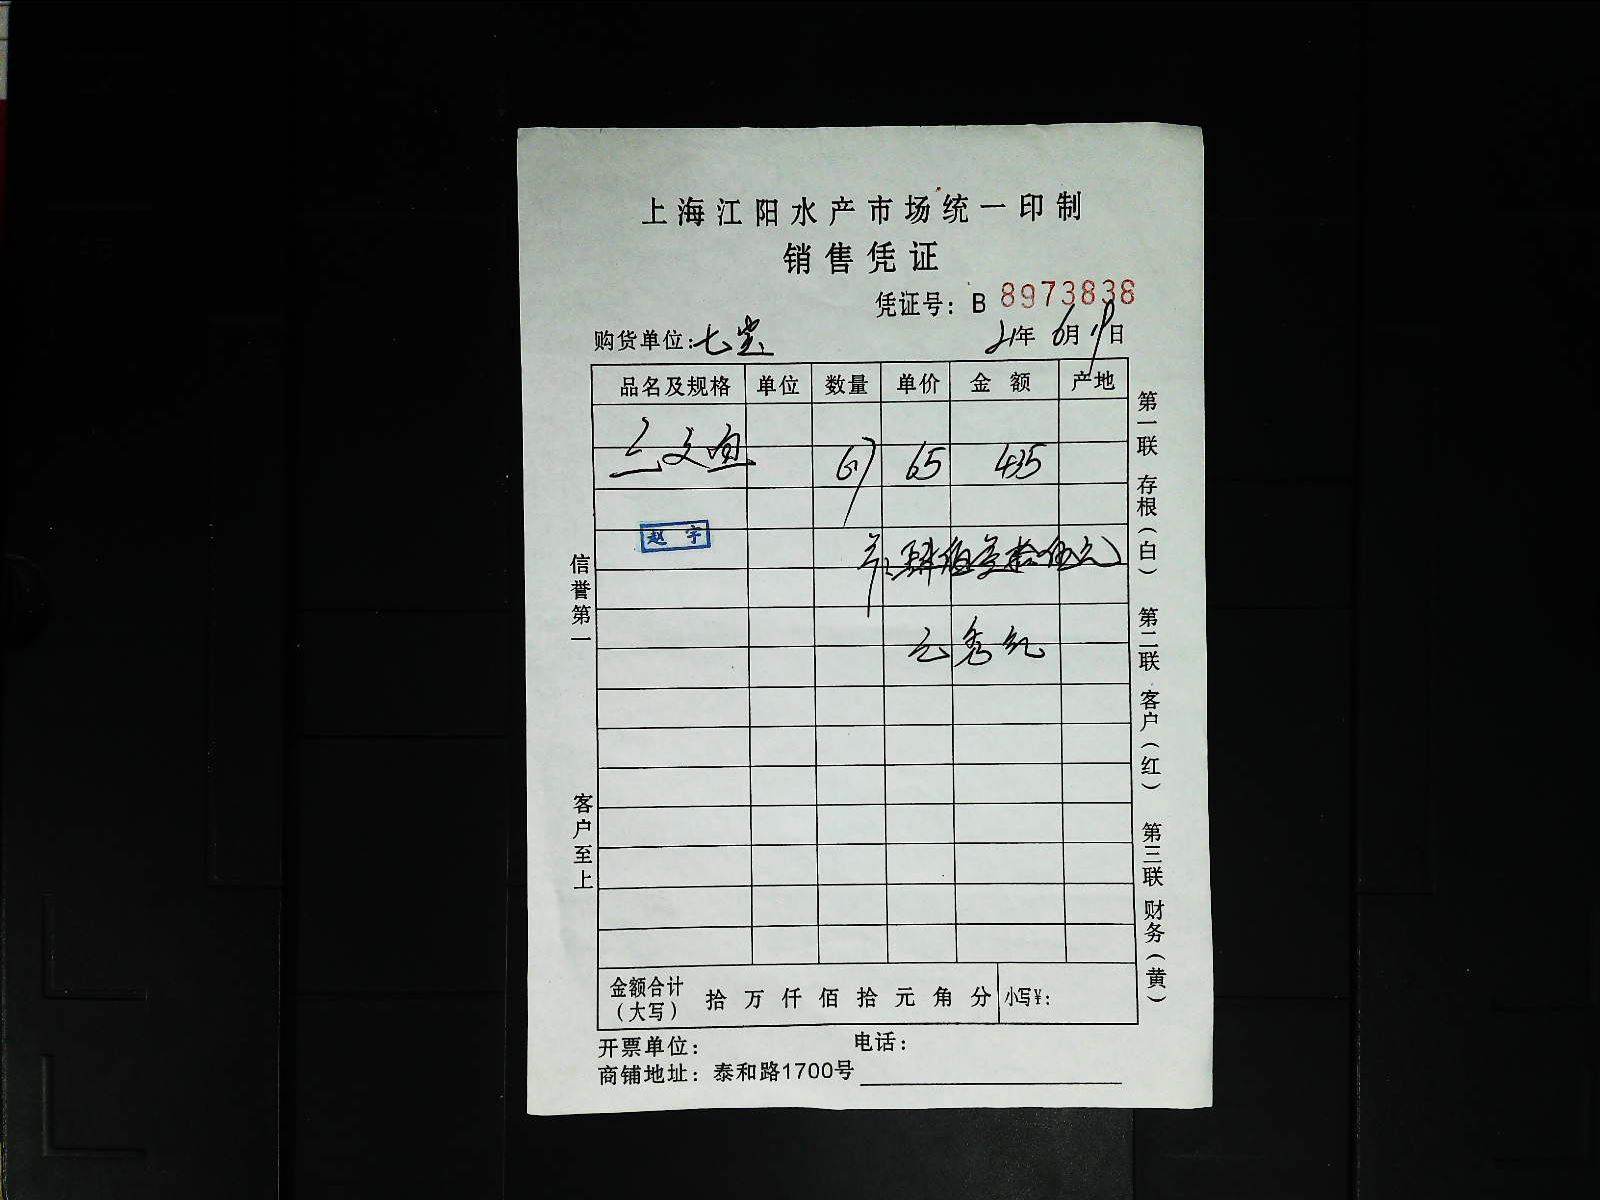 上海江阳水产市场统一印制
销售凭证
凭证号：B 8973838
购货单位：七宝 21年 6月 19日
品名及规格 单位 数量 单价 金额 产地
三文鱼 67 65 435
赵宇
肆佰叁拾伍元
金额合计（大写） 拾 万 仟 佰 拾 元 角 分 小写¥：
开票单位： 电话：
商铺地址：泰和路1700号
信誉第一
客户至上
第一联 存根（白） 第二联 客户（红） 第三联 财务（黄）